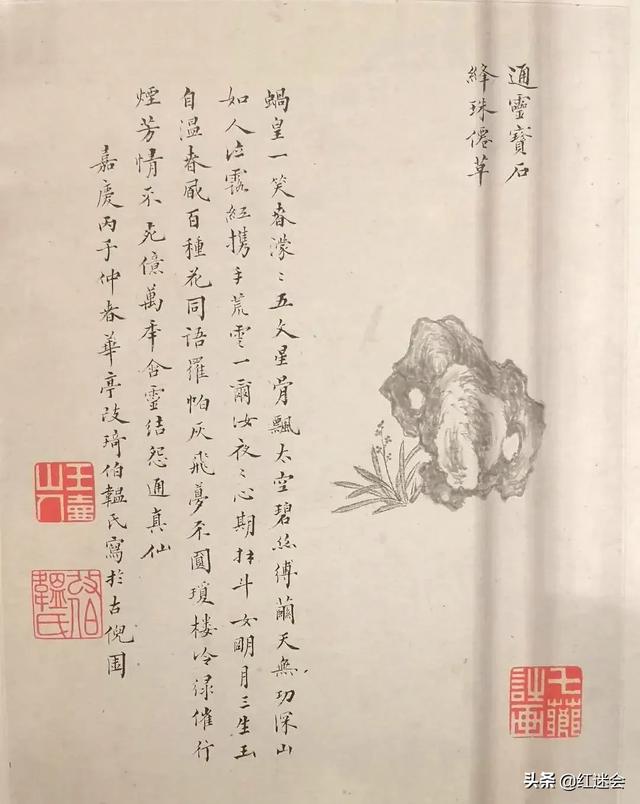 通靈寶石
絳珠僊草
蝸皇一笑春濛〻五文星骨飄太空碧絲縛繭天無功深山
如人泣露紅携手荒雲一爾汝夜〻心期斗女明月三生玉
自温春風百種花同語羅帕灰飛夢不圓瓊楼冷緑催行
煙芳情不死億萬年含靈結怨通真仙
嘉慶丙子仲春華亭改琦伯韞氏寫於古倪園
玉壺山人
改伯韞氏
七薌
头条 @红迷会